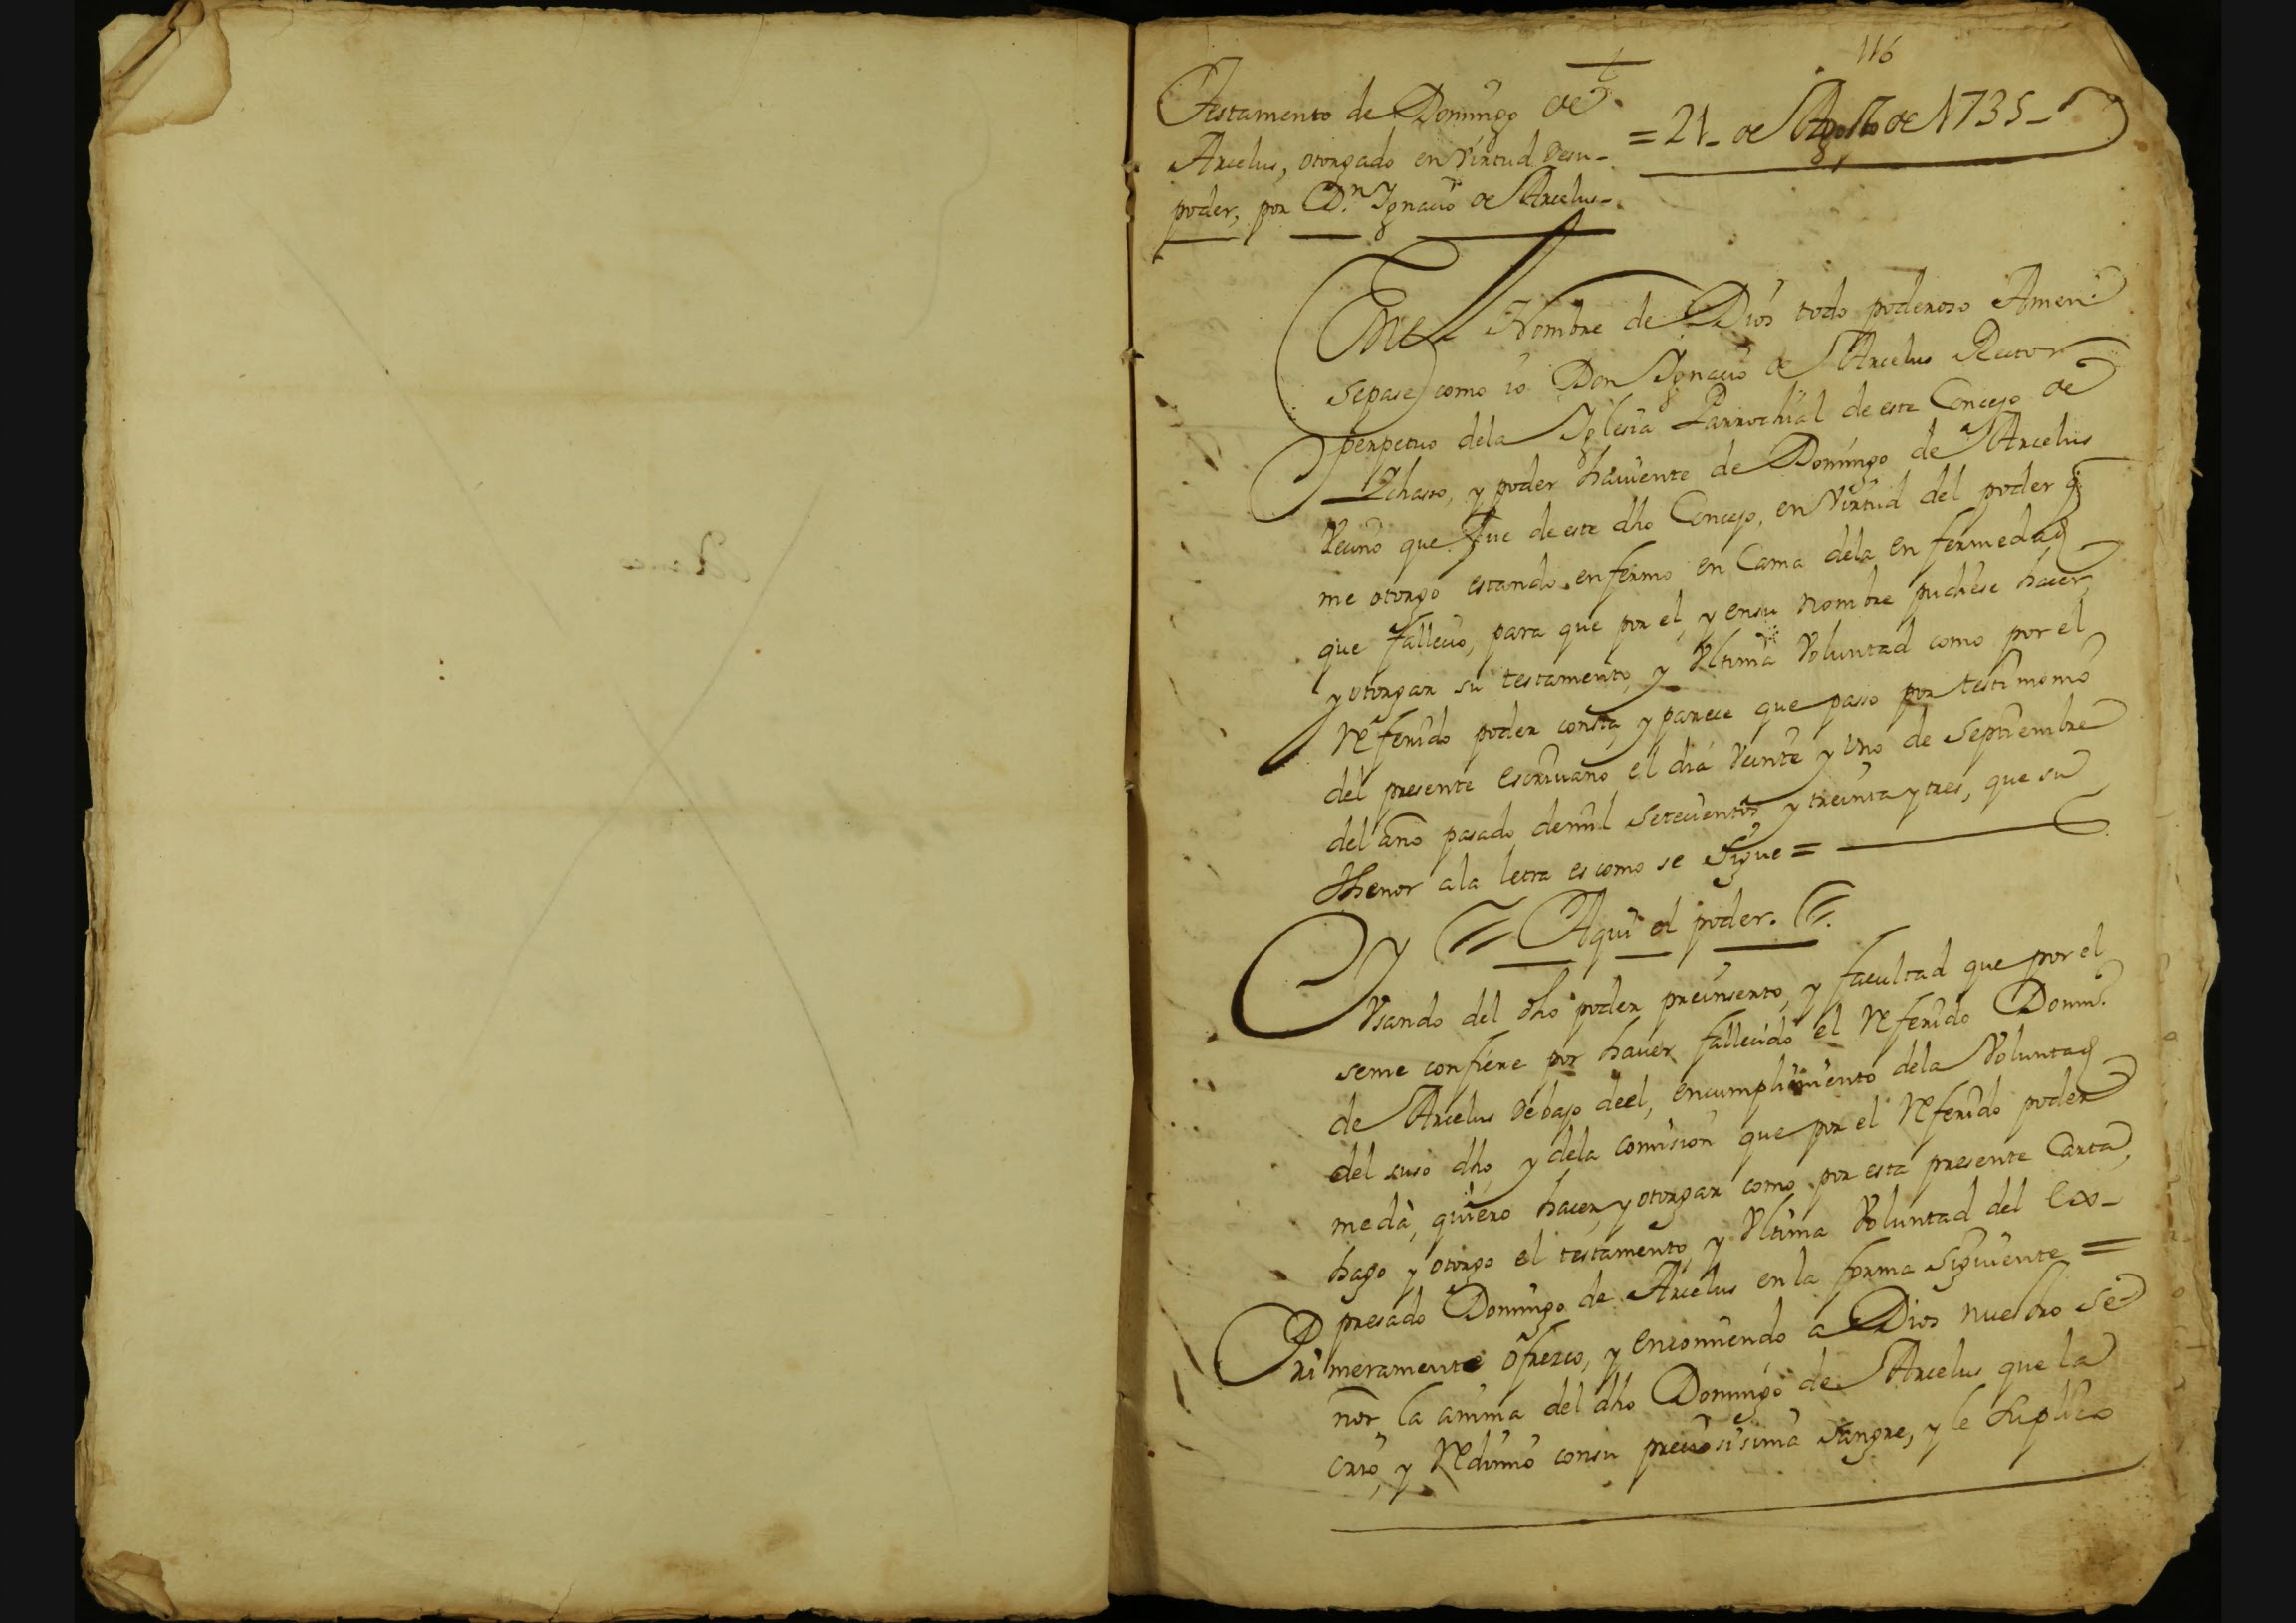 116
Testamento de Domingo de
Arcelus, otorgado en Virtud desu
poder, por Dn. Ignacio de Arcelus
= 21 - de Agosto de 1735 -
En el Nombre de Dios todo poderoso Amen
sepase como io Don Ignacio de Arcelus Rector
perpetuo dela Iglesia Parrochial de este Concejo de
Ychasso, y poder haviente de Domingo de Arcelus
Vecino que Fue de este dho Concejo, en Virtud del poder q
me otorgo estando enfermo en Cama dela enfermedad
que fallecio, para que por el, y ensu nombre pudiese hacer,
y otorgar su testamento, y Vltima Voluntad como por el
Referido poder consta, y parece que passo por testimonio
del presente escrivano el dia Veinte y Vno de Septiembre
del año pasado demil setecientos y treinta y tres, que su
thenor ala letra es como se sigue =
Aqui el poder.
Y Vsando del dho poder preinserto, y facultad que por el
seme confiere por haver fallecido el Referido Domin.º
de Arcelus debajo deel, encumplimiento dela Voluntad
del suso dho, y dela comision que por el Referido poder
meda, quiero hacer, y otorgar como por esta presente Carta,
hago y otorgo el testamento, y Vltima Voluntad del Ex-
presado Domingo de Arcelus en la forma Siguiente =
Primeramente ofrezco, y encomiendo a Dios nuestro Se-
ñor, la anima del dho Domingo de Arcelus que la
crio, y Redimio consu preciosisima sangre, y le suplico